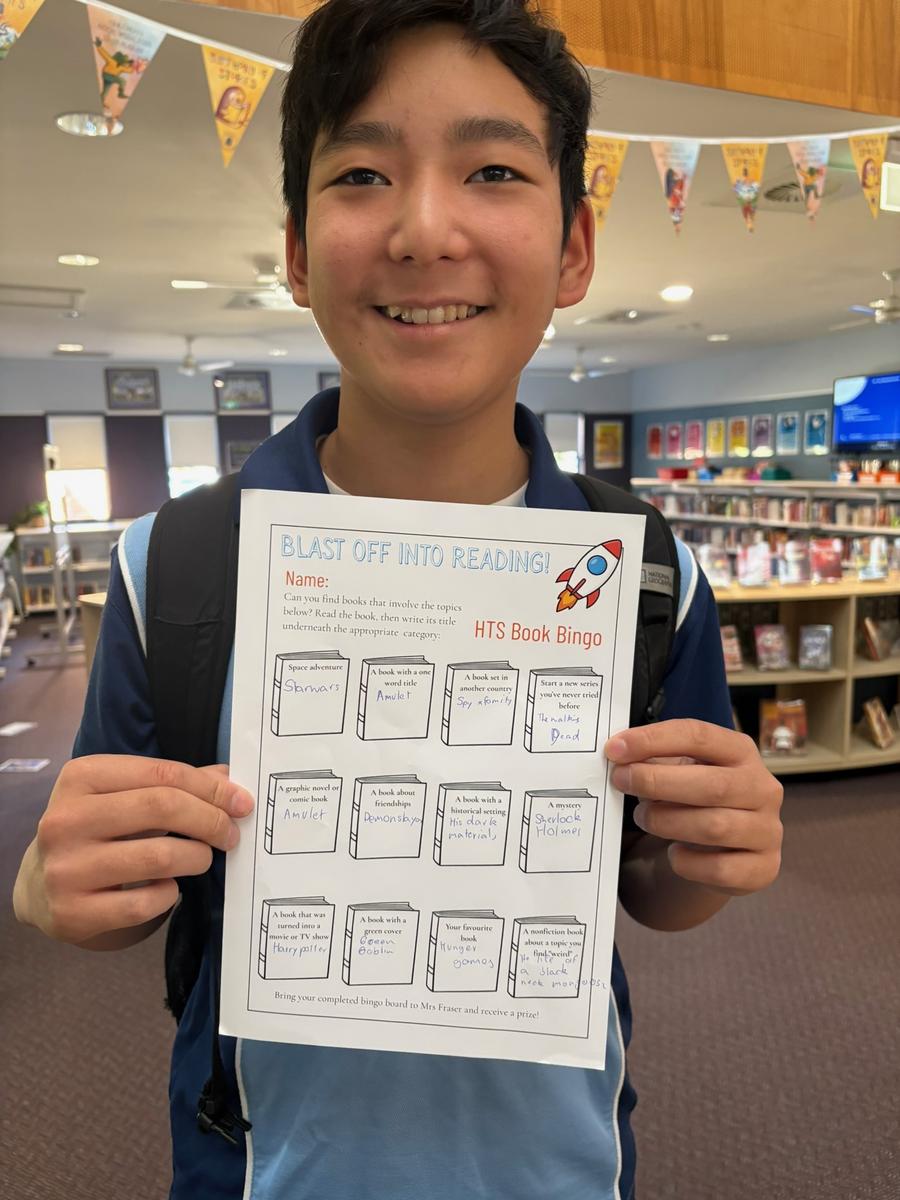 BLAST OFF INTO READING!
Name:
Can you find books that involve the topics
below? Read the book, then write its title
underneath the appropriate category:
HTS Book Bingo
Space adventure
Starwars
A book with a one
word title
Amulet
A book set in
another country
Spy xfamity
Start a new series
you've never tried
before
The walkin
Dead
A graphic novel or
comic book
Amulet
A book about
friendships
A book with a
historical setting
His dark
materials
A mystery
Sherlock
Holmes
A book that was
turned into a
movie or TV show
Harry potter
A book with a
green cover
Green
Goblin
Your favourite
book
Hunger
games
A nonfiction book
about a topic you
find "weird"
life of
a slack
neck mongoose
Bring your completed bingo board to Mrs Fraser and receive a prize!
NATIONAL
GEOGRAPHIC